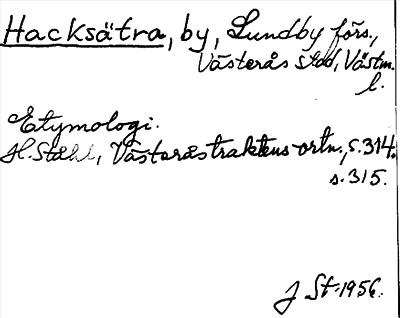 Hacksätra, by, Lundby förs.,
Västerås stad, Västm.
l.
Etymologi.
H. Ståhl, Västeråstraktens ortn., s. 314.
s. 315.
J St. 1956.